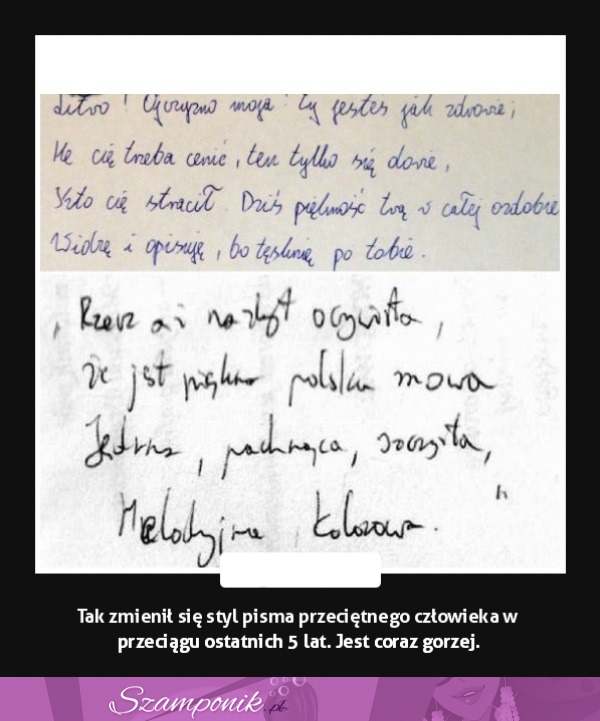 Litwo! Ojczyzno moja! Ty jesteś jak zdrowie;
Ile cię trzeba cenić, ten tylko się dowie,
Kto cię stracił. Dziś piękność twą w całej ozdobie
Widzę i opisuję, bo tęsknię po tobie.
„Rzecz aż nazbyt oczywista,
że jest piękna polska mowa
Jędrna, pachnąca, soczysta,
Melodyjna, kolorowa."
Tak zmienił się styl pisma przeciętnego człowieka w
przeciągu ostatnich 5 lat. Jest coraz gorzej.
Szamponik.pl